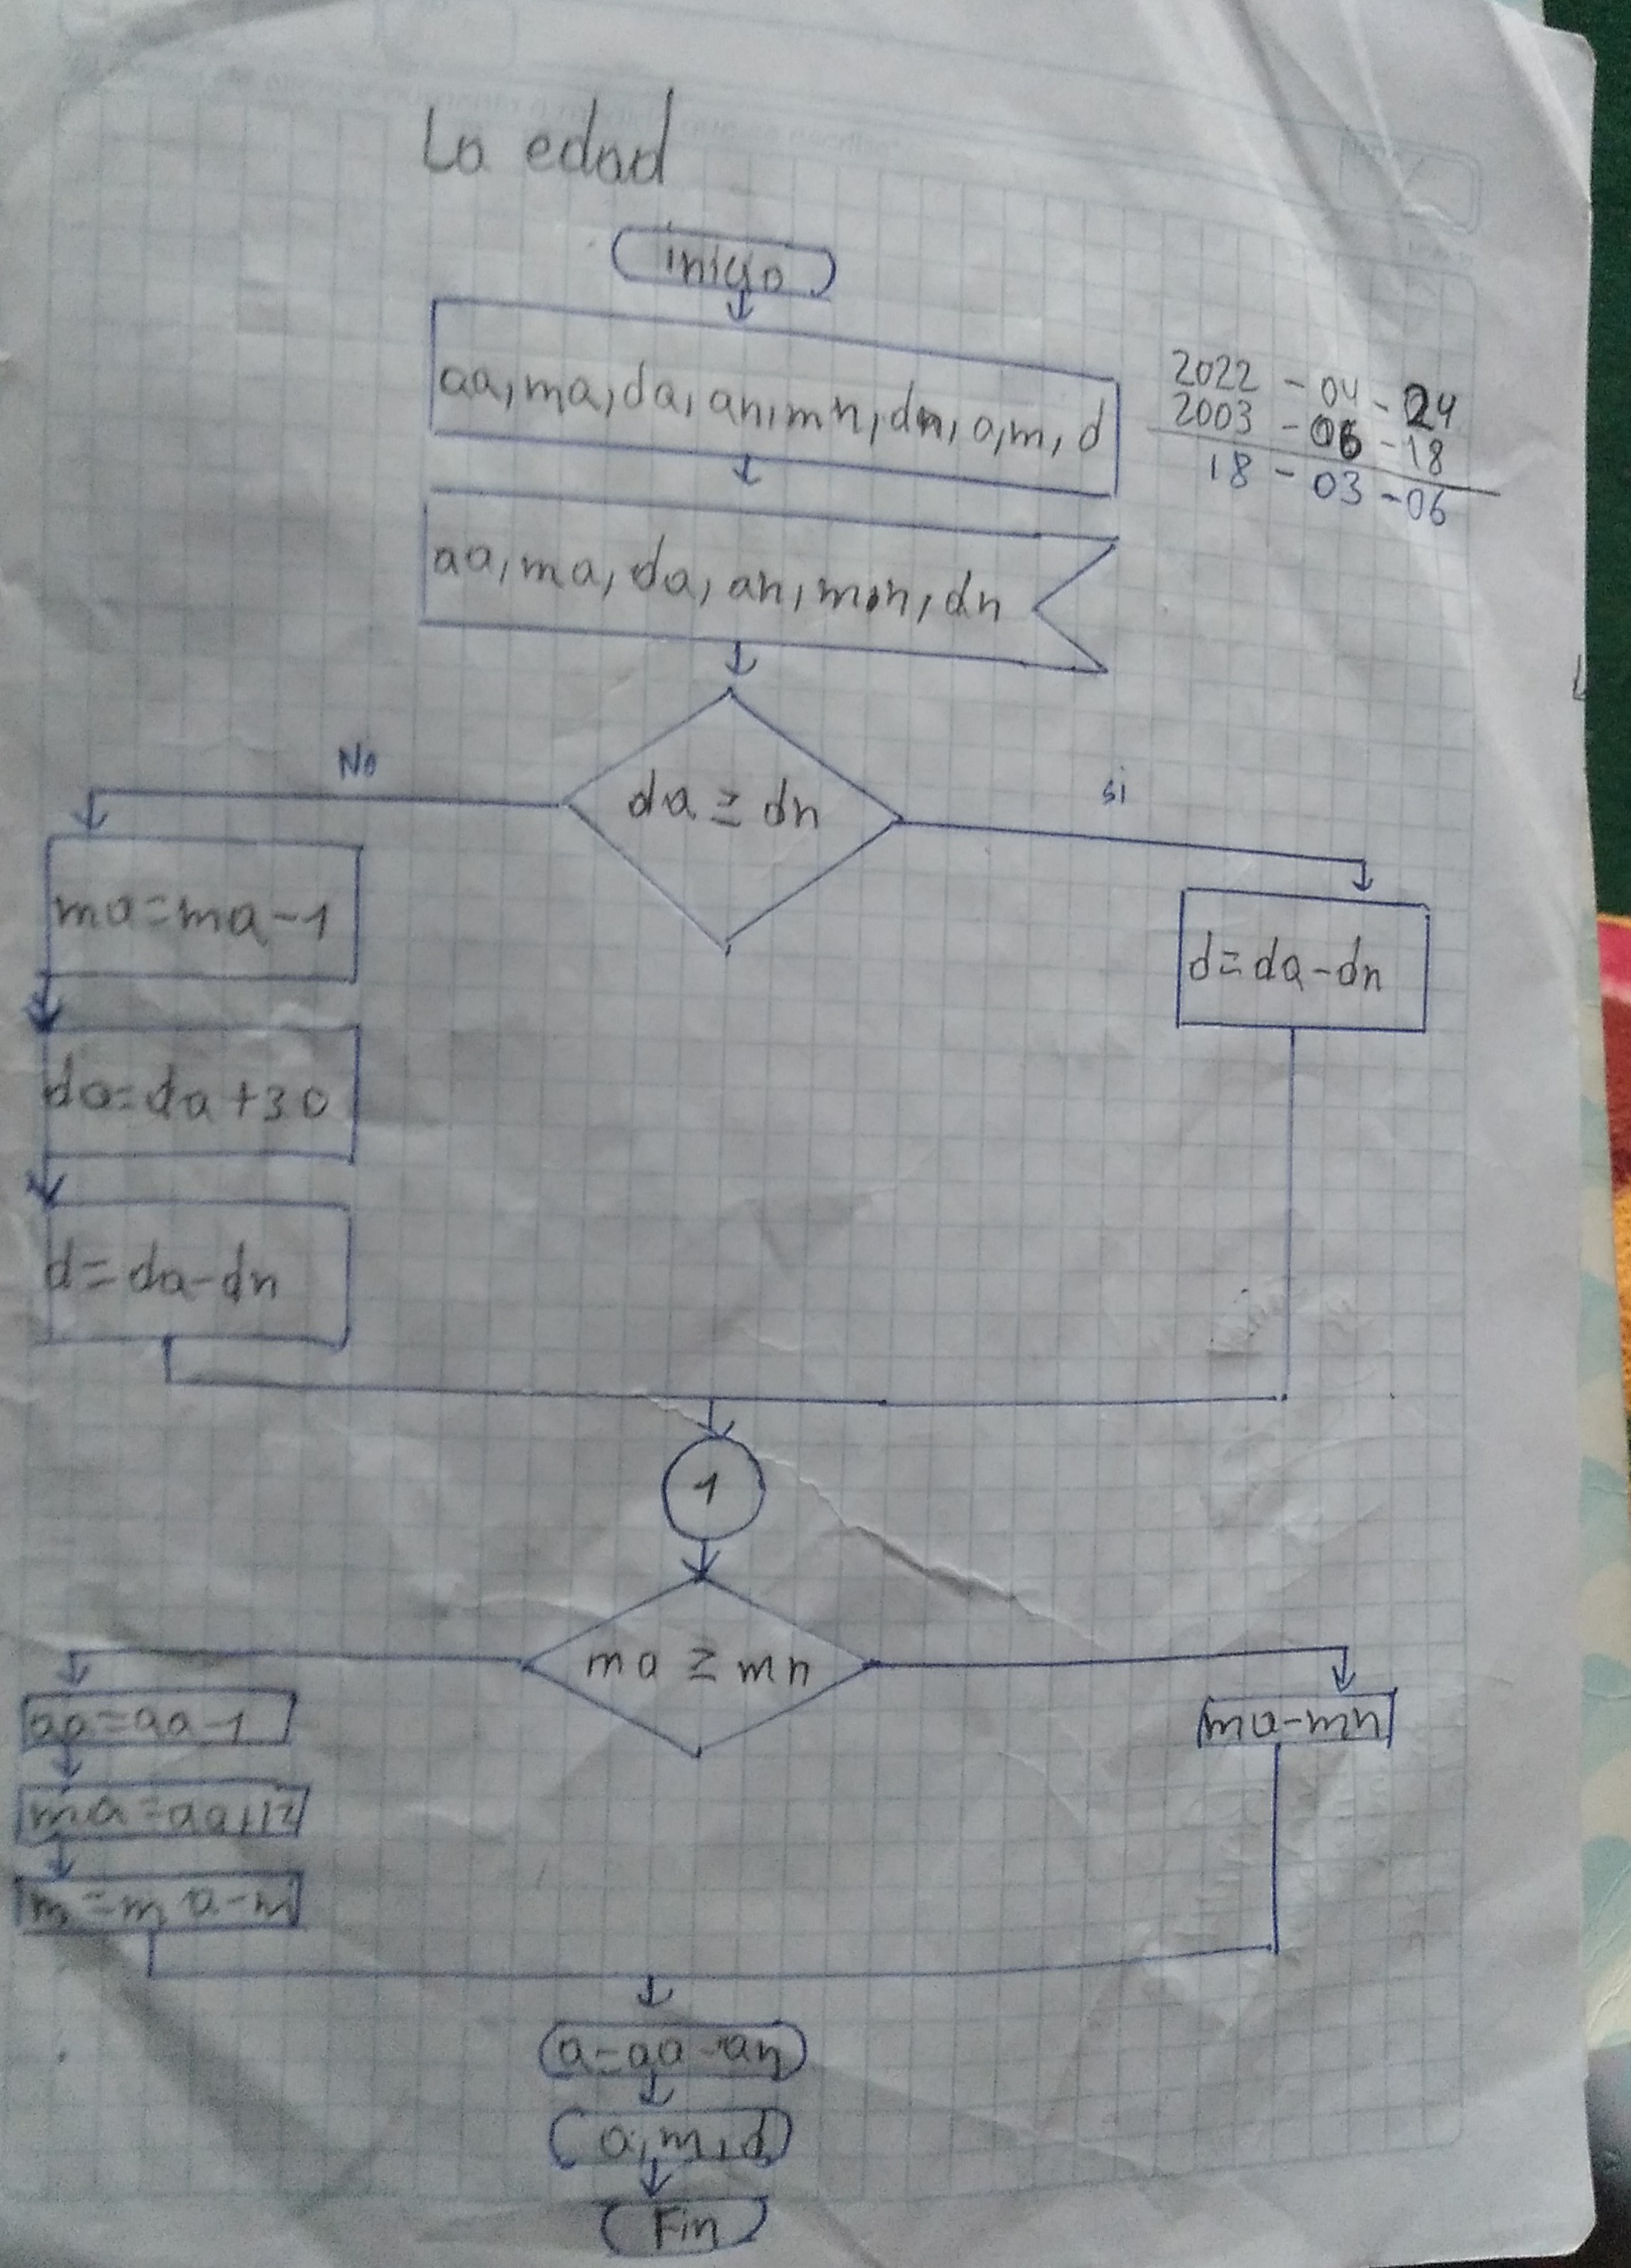 La edad
inicio
aa, ma, da, an, mn, dn, a, m, d
2022 - 04 - 24
2003 - 06 - 18
18 - 03 - 06
aa, ma, da, an, mn, dn
da ≥ dn
No
si
ma=ma-1
d=da-dn
da=da+30
d=da-dn
1
ma ≥ mn
aa=aa-1
ma-mn
ma=aa+12
m=ma-m
a=aa-an
a, m, d
Fin